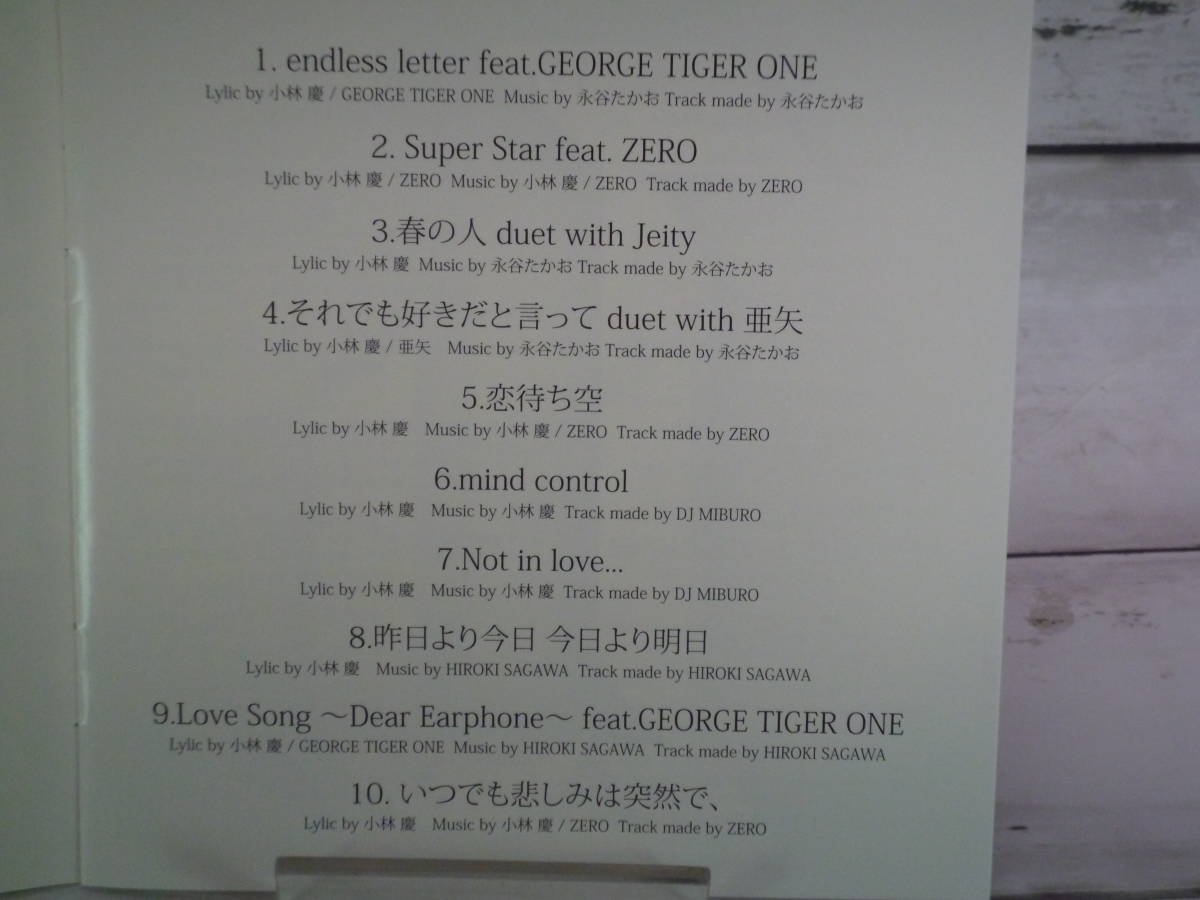 1. endless letter feat.GEORGE TIGER ONE
Lylic by 小林 慶 / GEORGE TIGER ONE Music by 永谷たかお Track made by 永谷たかお
2. Super Star feat. ZERO
Lylic by 小林 慶 / ZERO Music by 小林 慶 / ZERO Track made by ZERO
3.春の人 duet with Jeity
Lylic by 小林 慶 Music by 永谷たかお Track made by 永谷たかお
4.それでも好きだと言って duet with 亜矢
Lylic by 小林 慶 / 亜矢 Music by 永谷たかお Track made by 永谷たかお
5.恋待ち空
Lylic by 小林 慶 Music by 小林 慶 / ZERO Track made by ZERO
6.mind control
Lylic by 小林 慶 Music by 小林 慶 Track made by DJ MIBURO
7.Not in love...
Lylic by 小林 慶 Music by 小林 慶 Track made by DJ MIBURO
8.昨日より今日 今日より明日
Lylic by 小林 慶 Music by HIROKI SAGAWA Track made by HIROKI SAGAWA
9.Love Song ～Dear Earphone～ feat.GEORGE TIGER ONE
Lylic by 小林 慶 / GEORGE TIGER ONE Music by HIROKI SAGAWA Track made by HIROKI SAGAWA
10. いつでも悲しみは突然で、
Lylic by 小林 慶 Music by 小林 慶 / ZERO Track made by ZERO